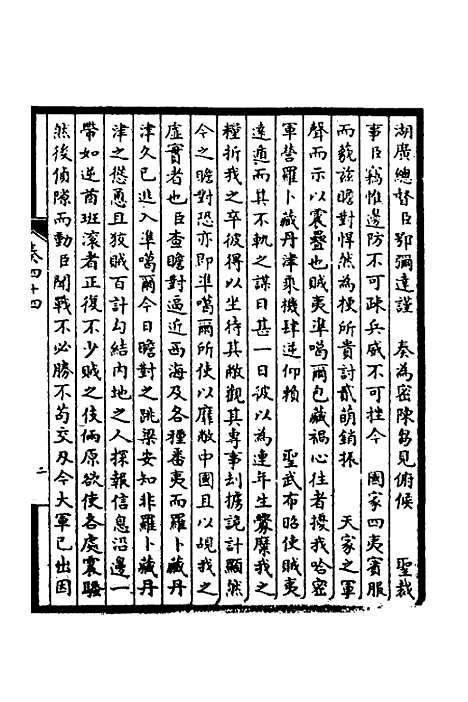 湖廣總督臣鄂彌達謹　奏為密陳芻見俯候　聖裁
事臣竊惟邊防不可疎兵威不可挫今　國家四夷賓服
而藐兹瞻對悍然為梗所貴討貳萌銷振　天家之軍
聲而示以震疊也賊夷準噶爾包藏禍心往者擾我哈密
軍營羅卜藏丹津乘機肆逆仰賴　聖武布昭使賊夷
遠遁而其不軌之謀日甚一日彼以為連年生釁糜我之
糧折我之卒彼得以坐待其敝觀其專事刦擄詭計顯然
今之瞻對恐亦即準噶爾所使以靡敝中國且以覘我之
虛實者也臣查瞻對逼近西海及各種番夷而羅卜藏丹
津久已逃入準噶爾今日瞻對之跳梁安知非羅卜藏丹
津之慫恿且狡賊百計勾結內地之人探報信息沿邊一
帶如逆酋班滚者正復不少賊之伎倆原欲使各處震驛
然後偵隙而動臣聞戰不必勝不苟交及今大軍已出因
卷四十四
二